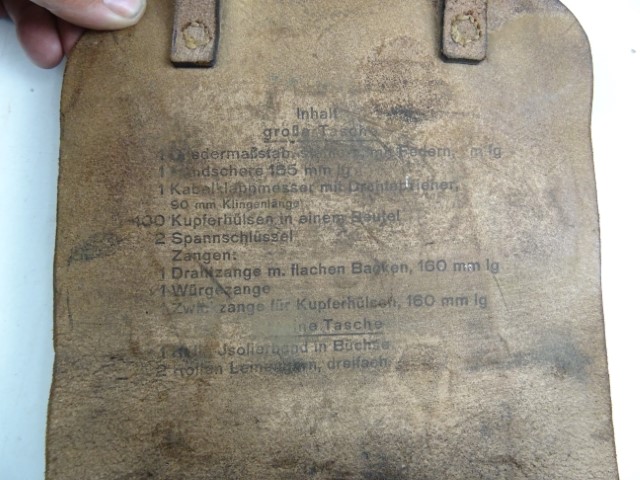 Inhalt
große Tasche
1 Gliedermaßstab, Federn, m lg
1 Handschere 165 mm lg
1 Kabelklappmesser mit Drahtabstreicher,
90 mm Klingenlänge
100 Kupferhülsen in einem Beutel
2 Spannschlüssel
Zangen:
1 Drahtzange m. flachen Backen, 160 mm lg
1 Würgezange
Zwick zange für Kupferhülsen, 160 mm lg
ine Tasche
1 Rolle Jsolierband in Büchse
2 Rollen Leinengarn, dreifach